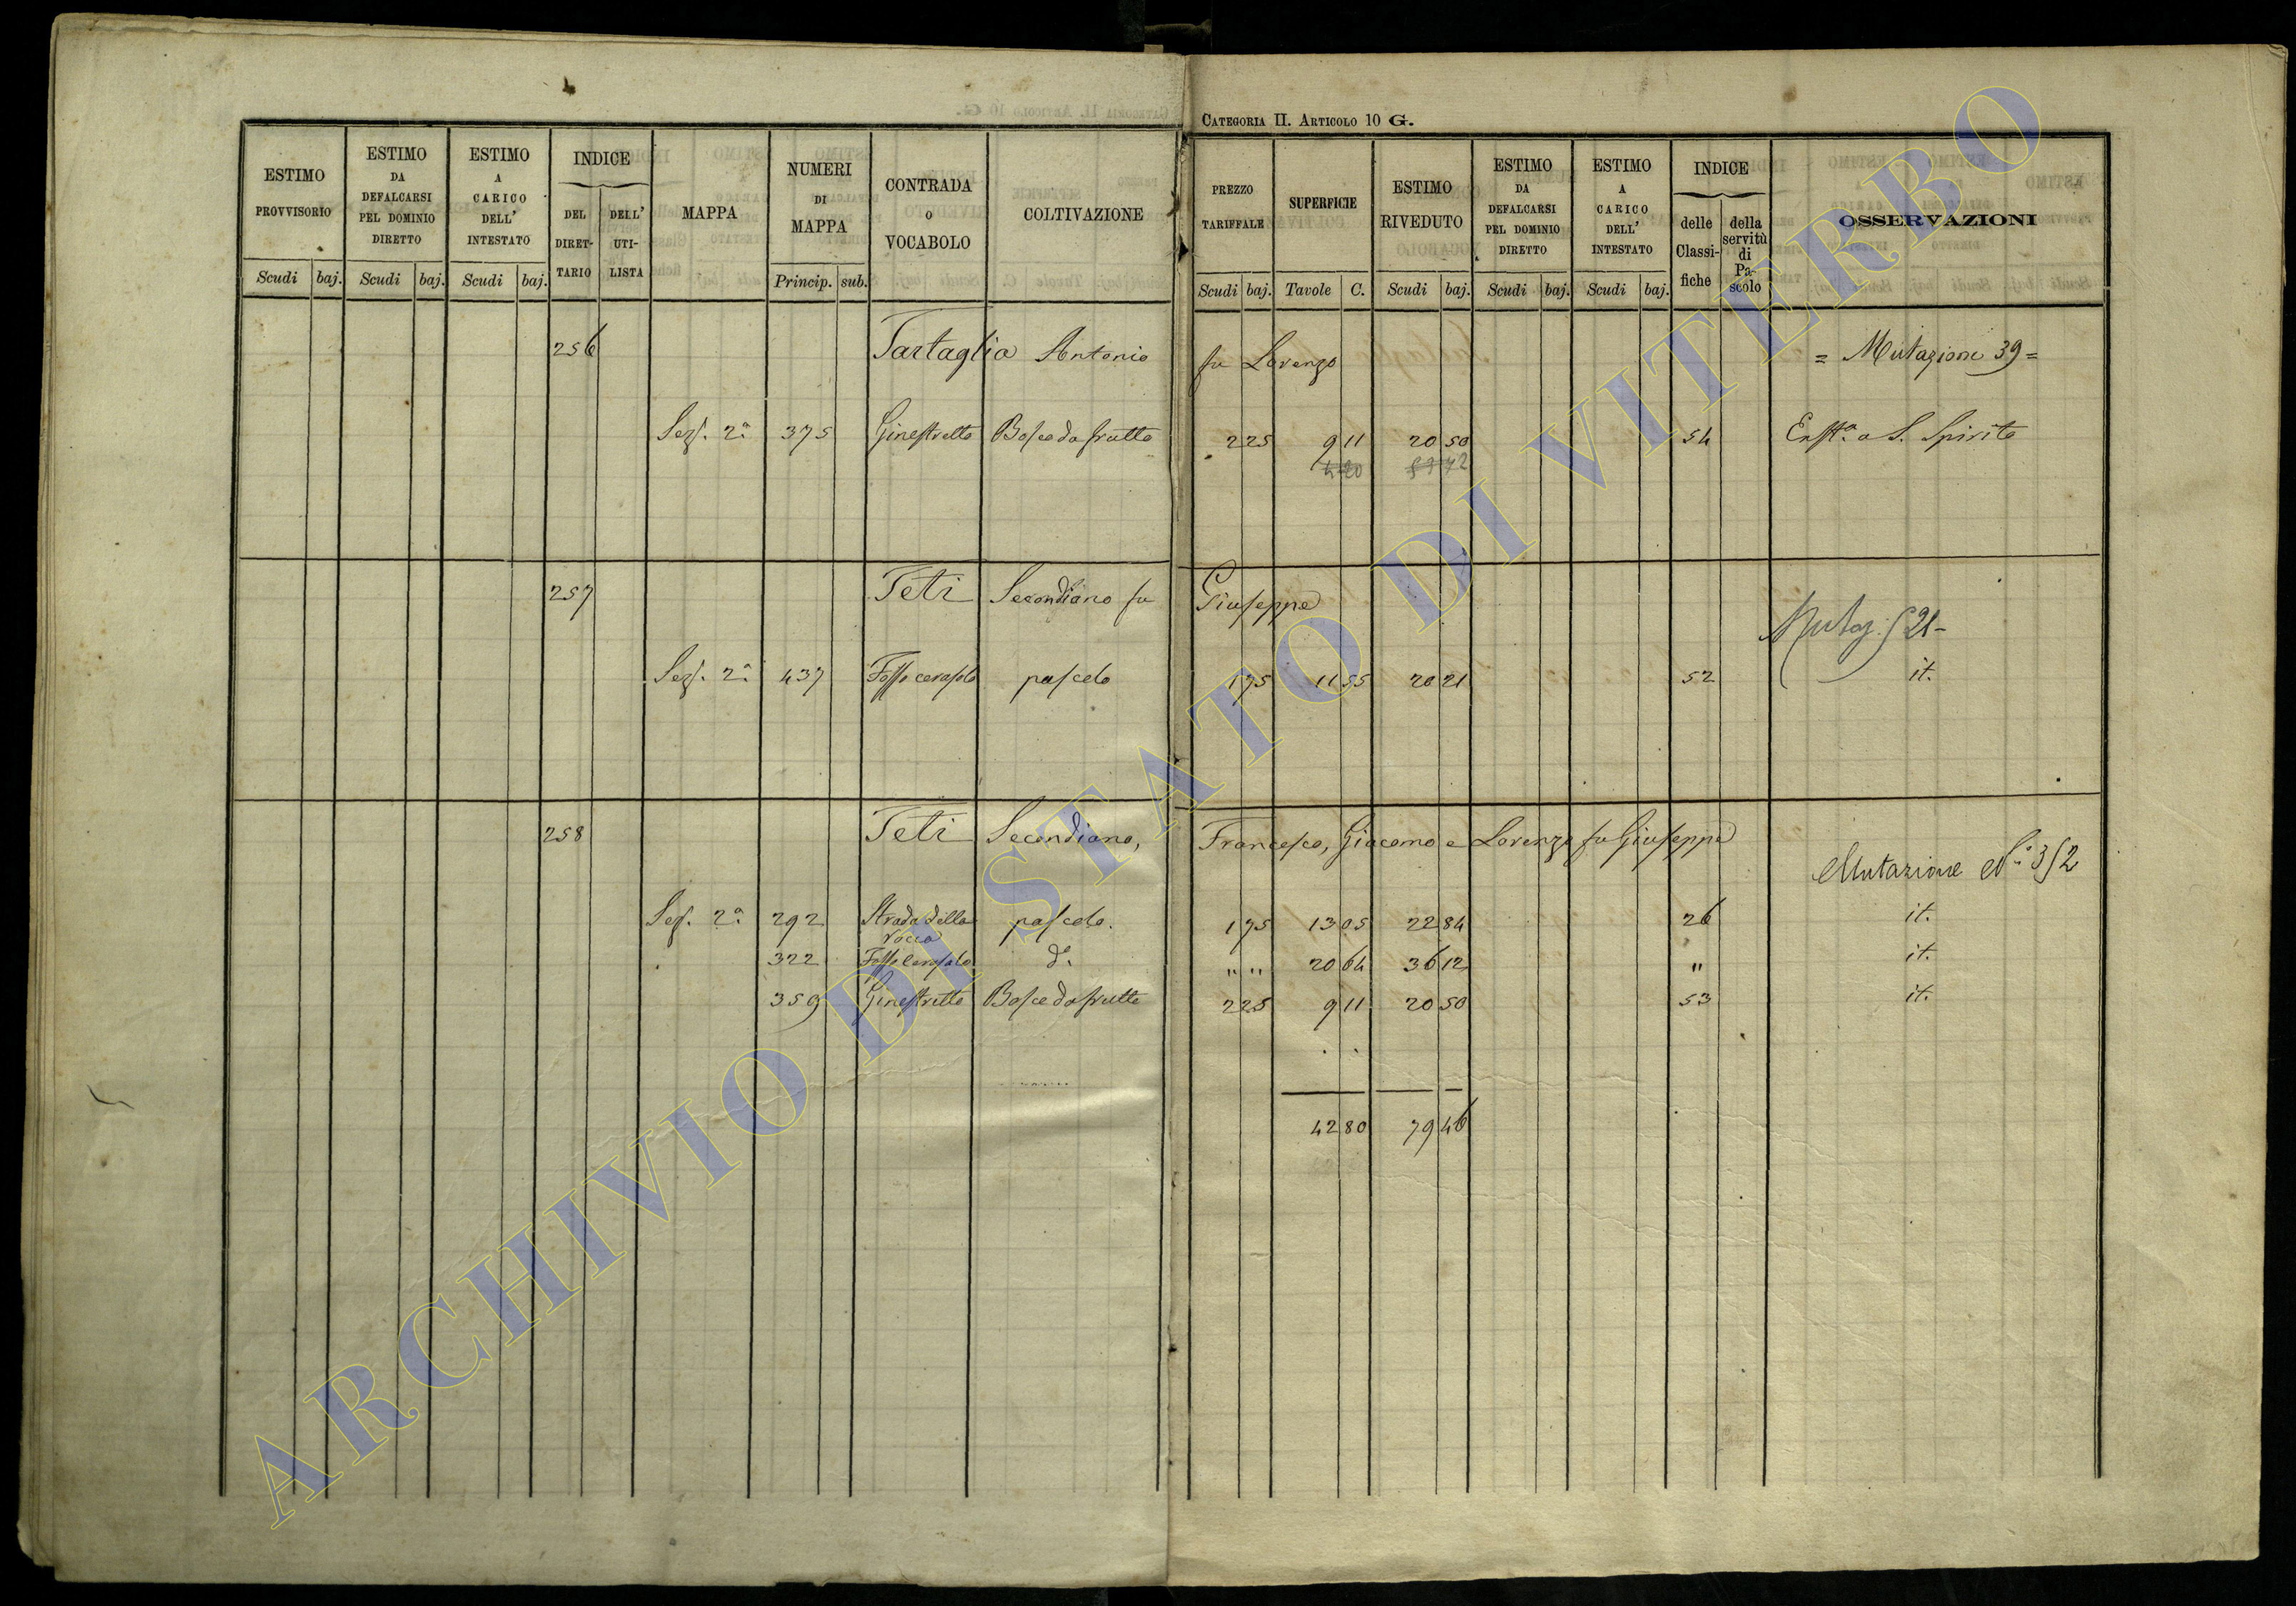 CATEGORIA II. ARTICOLO 10 G.
ESTIMO PROVVISORIO Scudi baj.
ESTIMO DA DEFALCARSI PEL DOMINIO DIRETTO Scudi baj.
ESTIMO A CARICO DELL' INTESTATO Scudi baj.
INDICE DEL DIRET-TARIO DELL' UTI-LISTA
MAPPA
NUMERI DI MAPPA Princip. sub.
CONTRADA O VOCABOLO
COLTIVAZIONE
PREZZO TARIFFALE Scudi baj.
SUPERFICIE Tavole C.
ESTIMO RIVEDUTO Scudi baj.
ESTIMO DA DEFALCARSI PEL DOMINIO DIRETTO Scudi baj.
ESTIMO A CARICO DELL' INTESTATO Scudi baj.
INDICE delle Classi-fiche della servitù di Pa-scolo
OSSERVAZIONI
256 Tartaglia Antonio fu Lorenzo = Mutazione 39 =
Sez. 2ª 375 Ginestretto Bosco da frutto 2 25 9 11 20 50 54 a S. Spirito
257 Teti Secondiano fu Giuseppe
Mutaz.
Sez. 2ª 437 Fosso cerasolo pascolo 1 75 11 55 20 21 52 it.
258 Teti Secondiano, Francesco, Giacomo e Lorenzo fu Giuseppe
Mutazione N.º 352
Sez. 2ª 292 Strada della rocca pascolo. 1 75 13 05 22 84 26 it.
322 Fosso Cerasolo dº. " " 20 64 36 12 " it.
359 Ginestretto Bosco da frutto 2 25 9 11 20 50 53 it.
42 80 79 46
ARCHIVIO DI STATO DI VITERBO